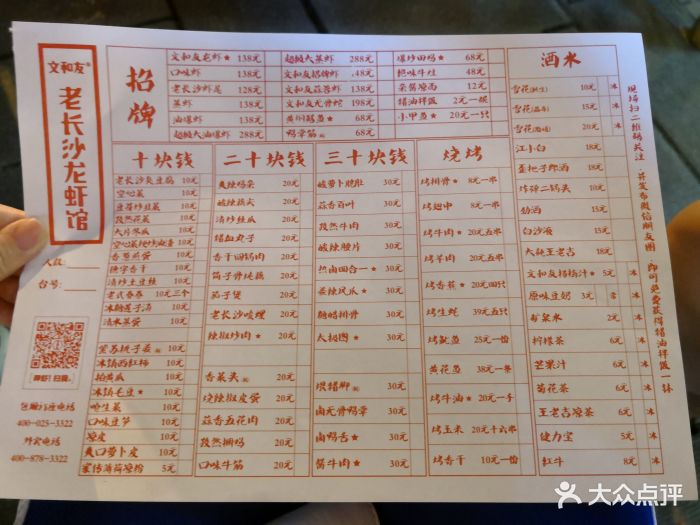 文和友®
老长沙龙虾馆
人数:
台号:
包厢订座电话
400-023-3322
外卖电话
400-878-3322
招牌
文和友龙虾★ 138元
口味虾 138元
老长沙虾尾 128元
蒸虾 138元
油爆虾 138元
超级大油爆虾 288元
超级大蒸虾 288元
文和友蒜蓉虾 138元
文和友无骨蛏 198元
68元
爆炒田鸡★ 68元
口味牛蛙 48元
12元
猪油拌饭 2元一碗
小甲鱼★ 20元一只
十块钱
老长沙臭豆腐 10元
空心菜 10元
10元
孜然花菜 10元
大片冬瓜 10元
10元
香葱煎蛋 10元
10元
清炒土豆丝 10元
10元三个
10元
清水蒸蛋 10元
紫苏桃子姜 10元
冰镇西红柿 10元
拍黄瓜 10元
冰镇毛豆★ 10元
呛生菜 10元
口味豆笋 10元
凉皮 10元
爽口萝卜皮 10元
家传薄荷凉粉 5元
二十块钱
爽辣鸡杂 20元
酸辣藕尖 20元
清炒丝瓜 20元
猪血丸子 20元
香干回锅肉 20元
筒子骨炖藕 20元
茄子煲 20元
老长沙呛螺 20元
辣椒炒肉★ 20元
香菜头 20元
烧辣椒皮蛋 20元
蒜香五花肉 20元
孜然掌中宝 20元
口味牛筋 20元
三十块钱
酸萝卜脆肚 30元
蒜香百叶 30元
孜然牛肉 30元
酸辣腰片 30元
热卤四合一★ 30元
酱辣凤爪★ 30元
30元
30元
30元
卤无骨鸭掌 30元
卤鸭舌★ 30元
酱牛肉★ 30元
烧烤
烤排骨★ 8元一串
烤翅中 8元一串
烤牛肉★ 20元五串
烤羊肉 20元五串
烤香菇★ 20元六串
烤生蚝 39元五只
烤鱿鱼 25元一份
烤黄花鱼 38元一条
烤牛油★ 20元十串
烤玉米 20元十六串
烤香干 10元一份
酒水
雪花 10元 冰
雪花 15元 冰
雪花 20元 冰
江小白 18元
歪把子郎酒 18元
炸碎二锅头 18元
劲酒 15元
白沙液 15元
大瓶王老吉 18元
文和友酸梅汁★ 5元 冰
原味豆奶 3元 常 冰
矿泉水 2元 冰
柠檬茶 6元 冰
芒果汁 6元 冰
菊花茶 6元 冰
王老吉凉茶 6元 冰
健力宝 5元 冰
红牛 8元 冰
现场扫二维码关注，并发布微信朋友圈，即可免费获得猪油拌饭一钵
大众点评